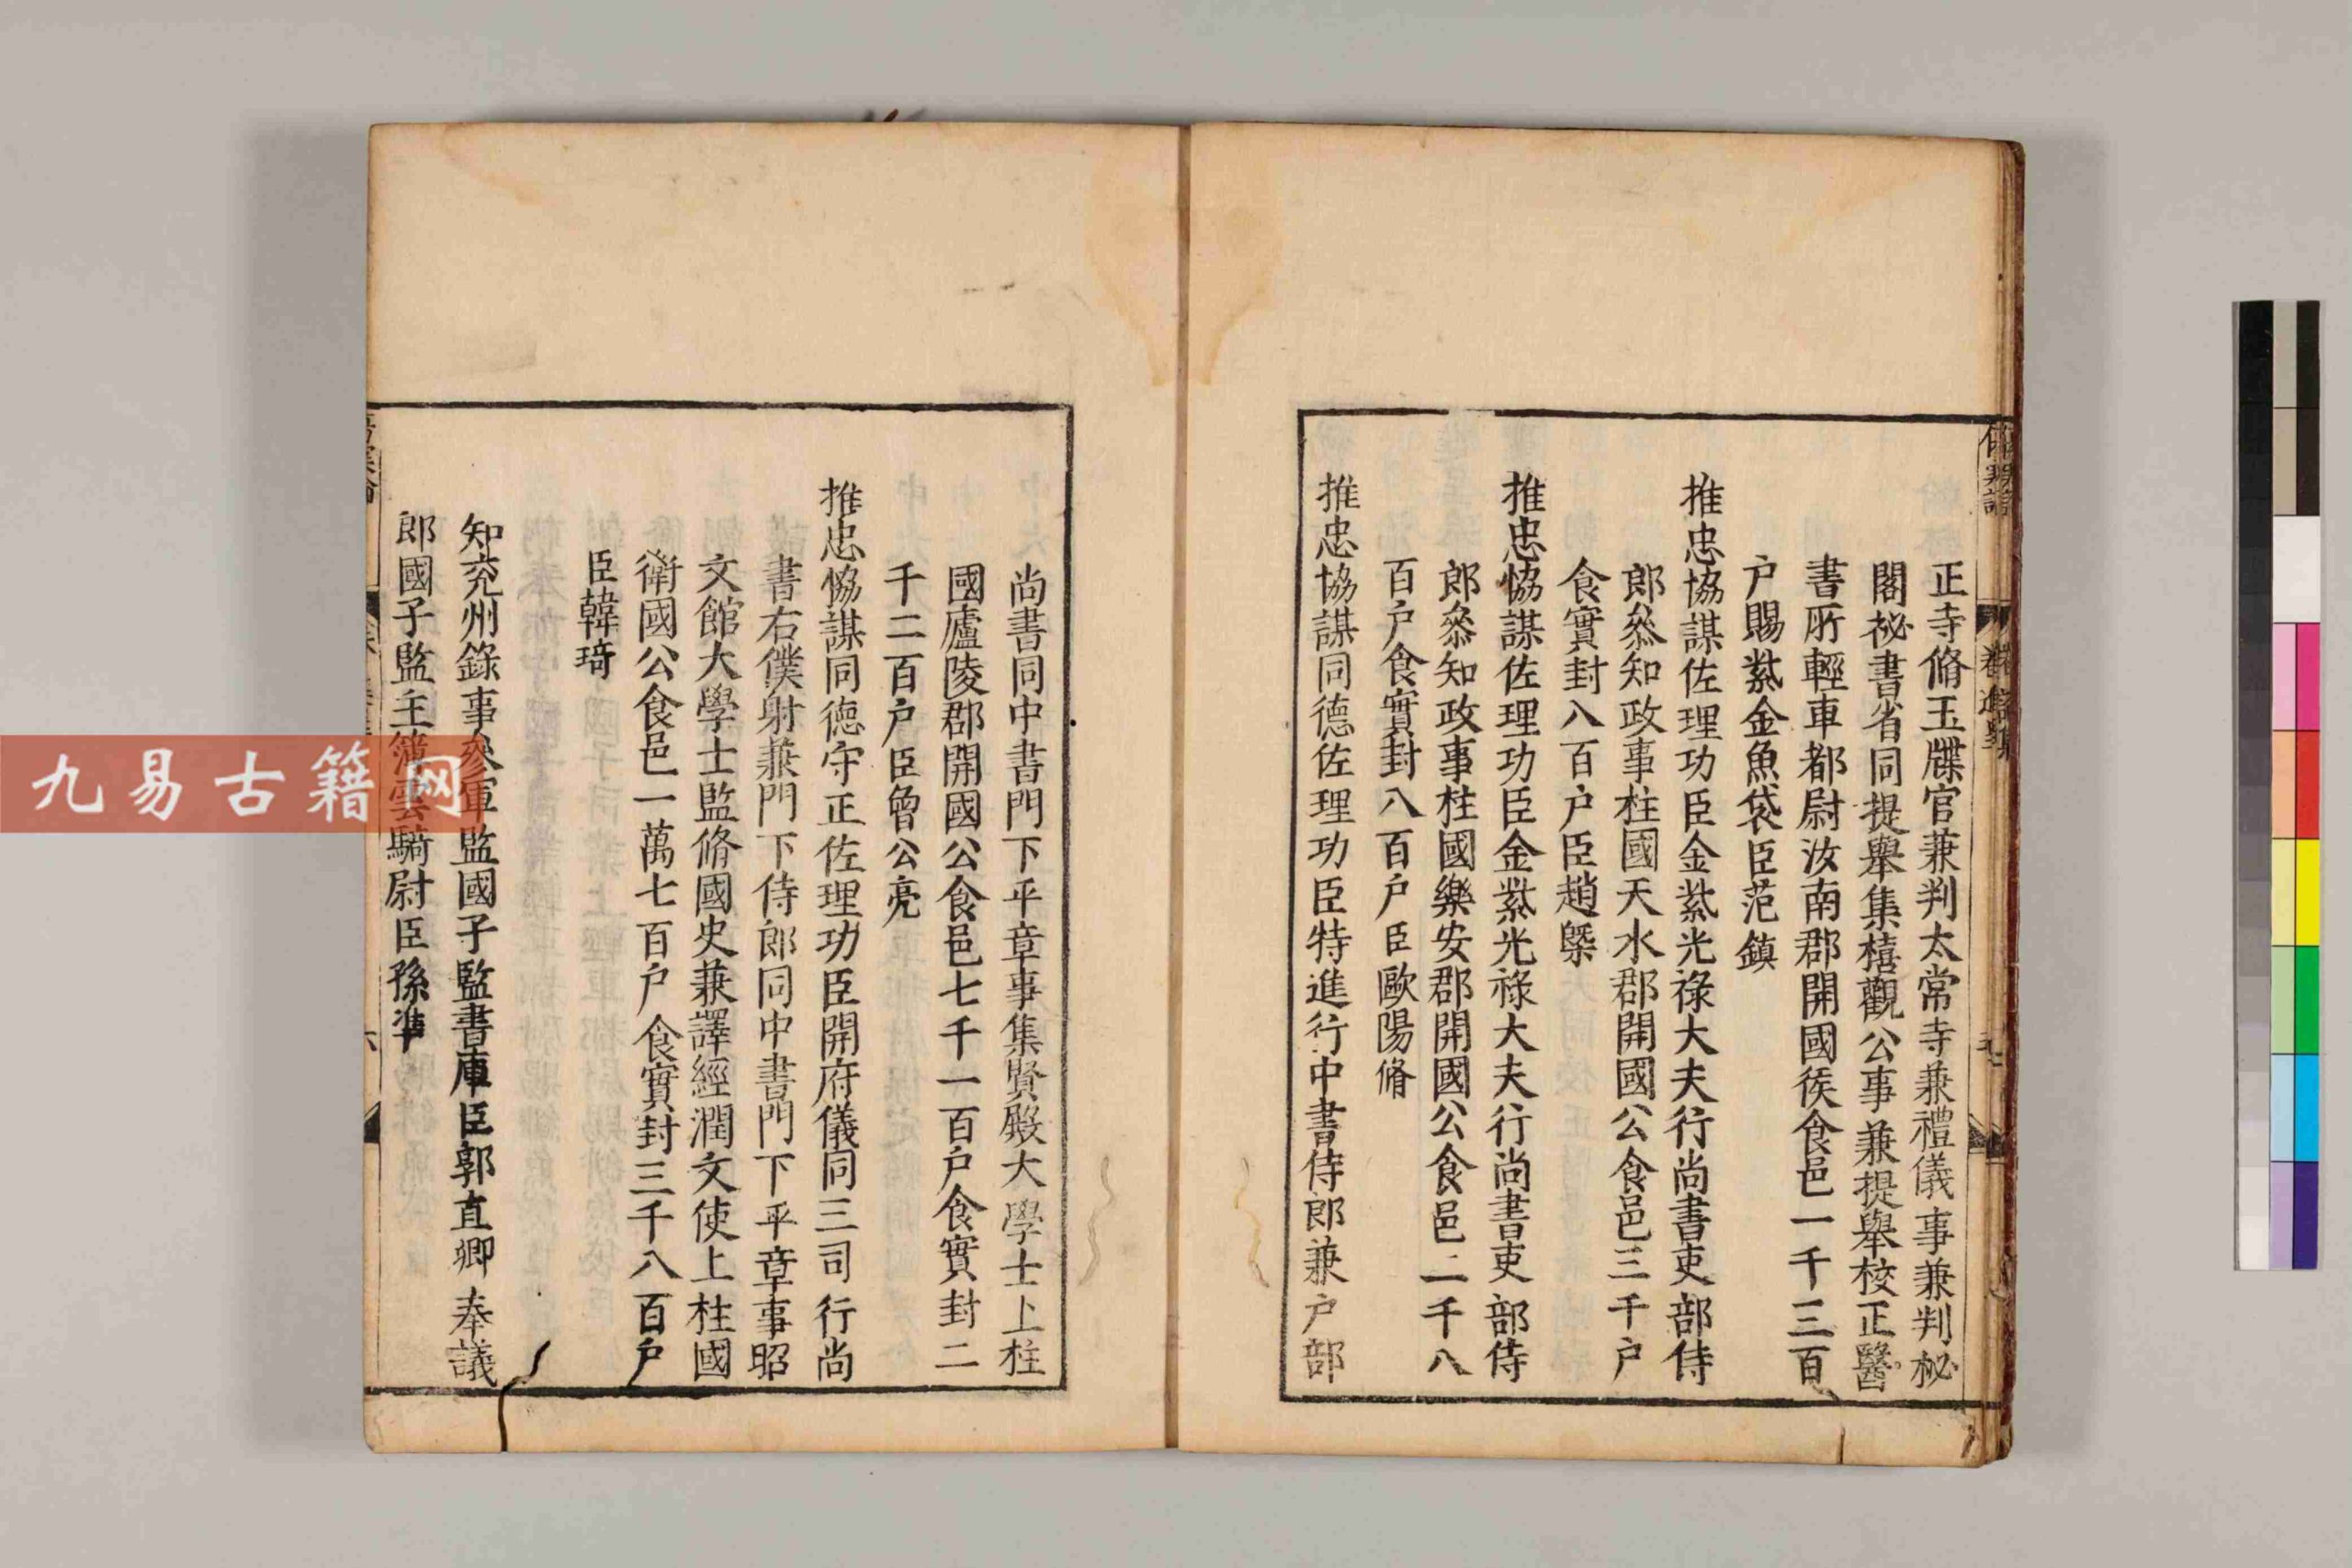 正寺脩玉牒官兼判太常寺兼禮儀事兼判祕
閣祕書省同提舉集禧觀公事兼提舉校正醫
書所輕車都尉汝南郡開國侯食邑一千三百
户賜紫金魚袋臣范鎮
推忠協謀佐理功臣金紫光祿大夫行尚書吏部侍
郎叅知政事柱國天水郡開國公食邑三千户
食實封八百户臣趙槩
推忠恊謀佐理功臣金紫光祿大夫行尚書吏部侍
郎叅知政事柱國樂安郡開國公食邑二千八
百户食實封八百户臣歐陽脩
推忠協謀同德佐理功臣特進行中書侍郎兼户部
尚書同中書門下平章事集賢殿大學士上柱
國廬陵郡開國公食邑七千一百户食實封二
千二百户臣曾公亮
推忠恊謀同德守正佐理功臣開府儀同三司行尚
書右僕射兼門下侍郎同中書門下平章事昭
文館大學士監脩國史兼譯經潤文使上柱國
衛國公食邑一萬七百户食實封三千八百户
臣韓琦
知兖州錄事參軍監國子監書庫臣郭直卿奉議
郎國子監主簿雲騎尉臣孫準
九易古籍网